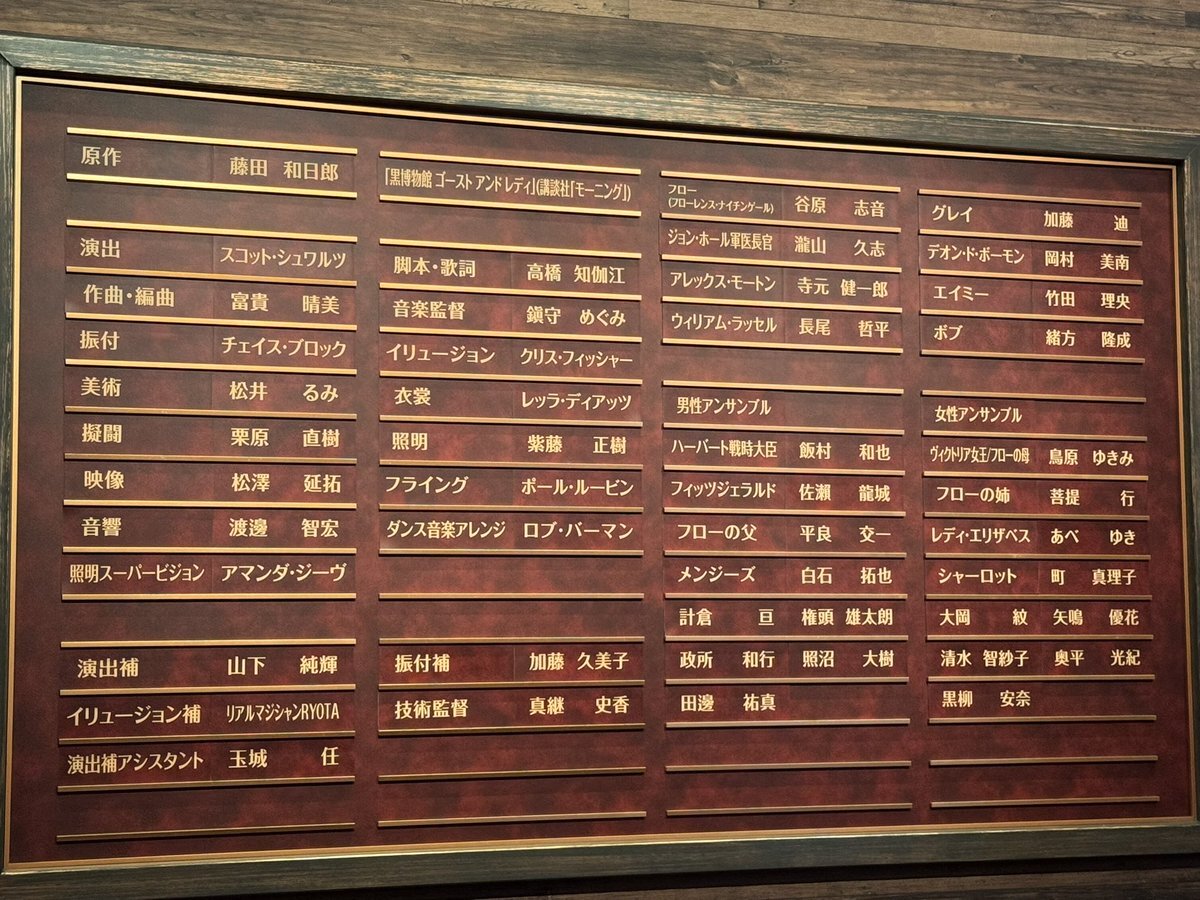 原作 藤田 和日郎 「黒博物館 ゴースト アンド レディ」(講談社「モーニング」)
演出 スコット・シュワルツ
作曲・編曲 富貴 晴美
振付 チェイス・ブロック
美術 松井 るみ
擬闘 栗原 直樹
映像 松澤 延拓
音響 渡邊 智宏
照明スーパービジョン アマンダ・ジーヴ
脚本・歌詞 高橋 知伽江
音楽監督 鎭守 めぐみ
イリュージョン クリス・フィッシャー
衣裳 レッラ・ディアッツ
照明 紫藤 正樹
フライング ポール・ルービン
ダンス音楽アレンジ ロブ・バーマン
演出補 山下 純輝
イリュージョン補 リアルマジシャンRYOTA
演出補アシスタント 玉城 任
振付補 加藤 久美子
技術監督 真継 史香
フロー
(フローレンス・ナイチンゲール) 谷原 志音
ジョン・ホール軍医長官 瀧山 久志
アレックス・モートン 寺元 健一郎
ウィリアム・ラッセル 長尾 哲平
グレイ 加藤 迪
デオン・ド・ボーモン 岡村 美南
エイミー 竹田 理央
ボブ 緒方 隆成
男性アンサンブル
ハーバート戦時大臣 飯村 和也
フィッツジェラルド 佐瀬 龍城
フローの父 平良 交一
メンジーズ 白石 拓也
計倉 亘 権頭 雄太朗
政所 和行 照沼 大樹
田邊 祐真
女性アンサンブル
ヴィクトリア女王/フローの母 鳥原 ゆきみ
フローの姉 菩提 行
レディ・エリザベス あべ ゆき
シャーロット 町 真理子
大岡 紋 矢鳴 優花
清水 智紗子 奥平 光紀
黒柳 安奈